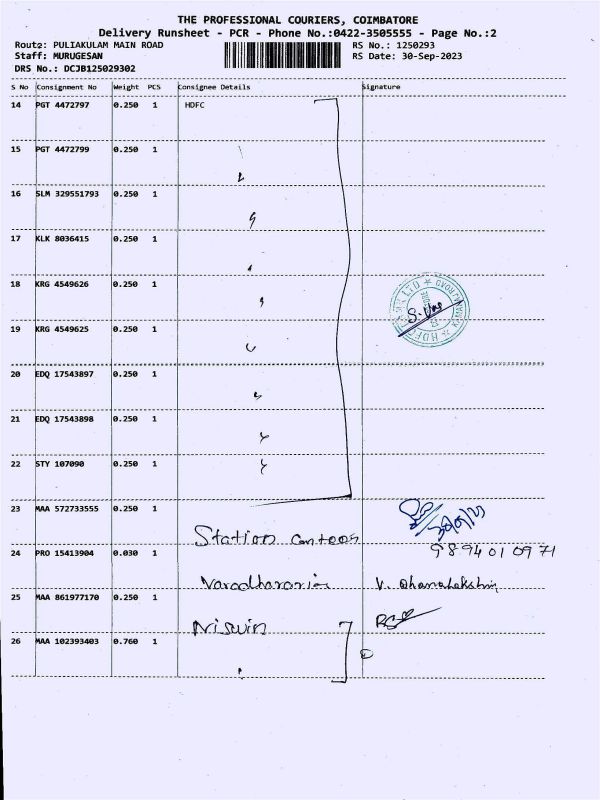 THE PROFESSIONAL COURIERS, COIMBATORE
Delivery Runsheet - PCR - Phone No.:0422-3505555 - Page No.:2
Route: PULIAKULAM MAIN ROAD RS No.: 1250293
Staff: MURUGESAN RS Date: 30-Sep-2023
DRS No.: DCJB125029302
S No Consignment No Weight PCS Consignee Details Signature
14 PGT 4472797 0.250 1 HDFC
15 PGT 4472799 0.250 1
16 SLM 329551793 0.250 1
17 KLK 8036415 0.250 1
18 KRG 4549626 0.250 1
19 KRG 4549625 0.250 1
20 EDQ 17543897 0.250 1
21 EDQ 17543898 0.250 1
22 STY 107090 0.250 1
23 MAA 572733555 0.250 1
Station canteen
9894010971
24 PRO 15413904 0.030 1
25 MAA 861977170 0.250 1
26 MAA 102393403 0.760 1